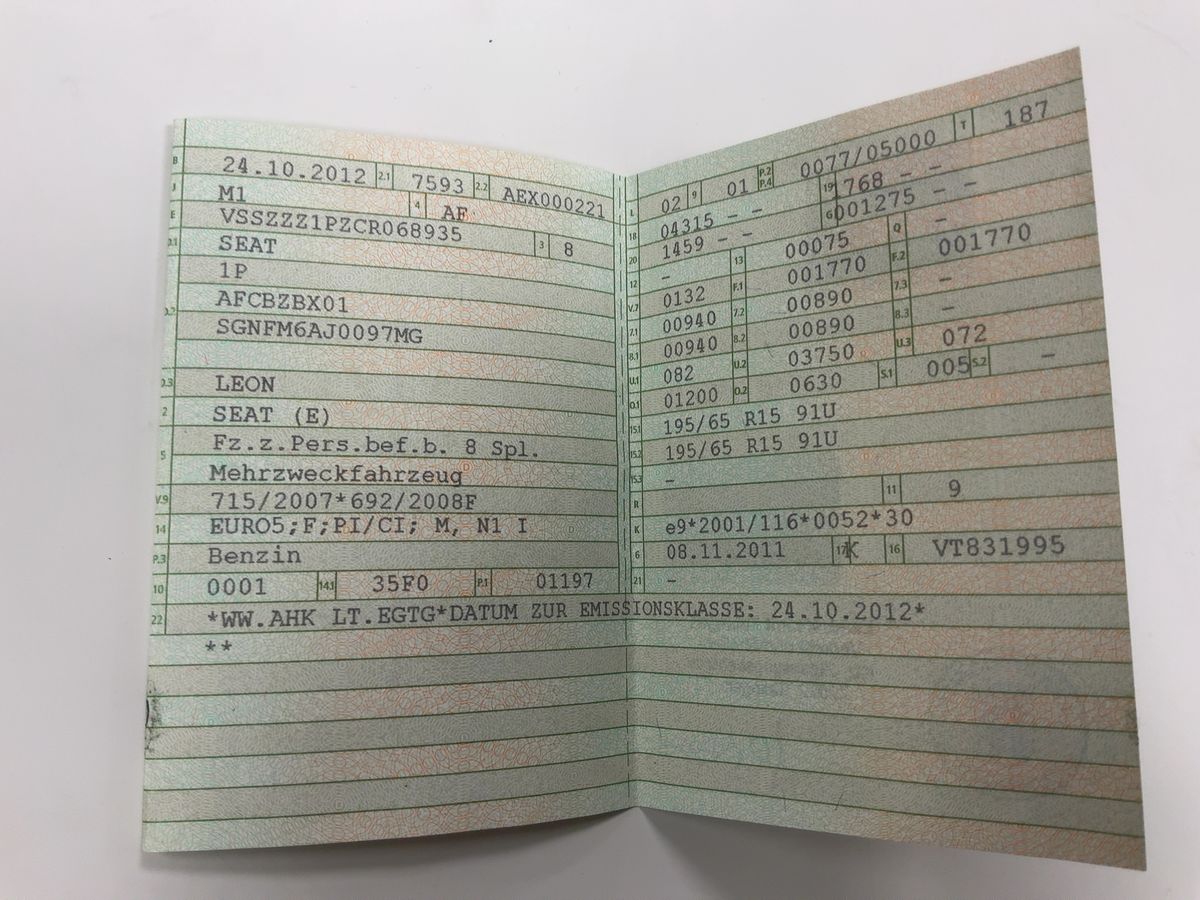 B 24.10.2012 2.1 7593 2.2 AEX000221
J M1 4 AF
E VSSZZZ1PZCR068935 3 8
D.1 SEAT
1P
D.2 AFCBZBX01
SGNFM6AJ0097MG
D.3 LEON
2 SEAT (E)
5 Fz.z.Pers.bef.b. 8 Spl.
Mehrzweckfahrzeug
V.9 715/2007*692/2008F
14 EURO5;F;PI/CI; M, N1 I
P.3 Benzin
10 0001 14.1 35F0 P.1 01197
22 *WW.AHK LT.EGTG*DATUM ZUR EMISSIONSKLASSE: 24.10.2012*
**
L 02 9 01 P.2 P.4 0077/05000 T 187
18 04315 - - 19 768 - -
20 1459 - - G 001275 - -
12 - 13 00075 Q -
V.7 0132 F.1 001770 F.2 001770
7.1 00940 7.2 00890 7.3 -
8.1 00940 8.2 00890 8.3 -
U.1 082 U.2 03750 U.3 072
O.1 01200 O.2 0630 S.1 005 S.2 -
15.1 195/65 R15 91U
15.2 195/65 R15 91U
15.3 -
R 11 9
K e9*2001/116*0052*30
6 08.11.2011 17 K 16 VT831995
21 -